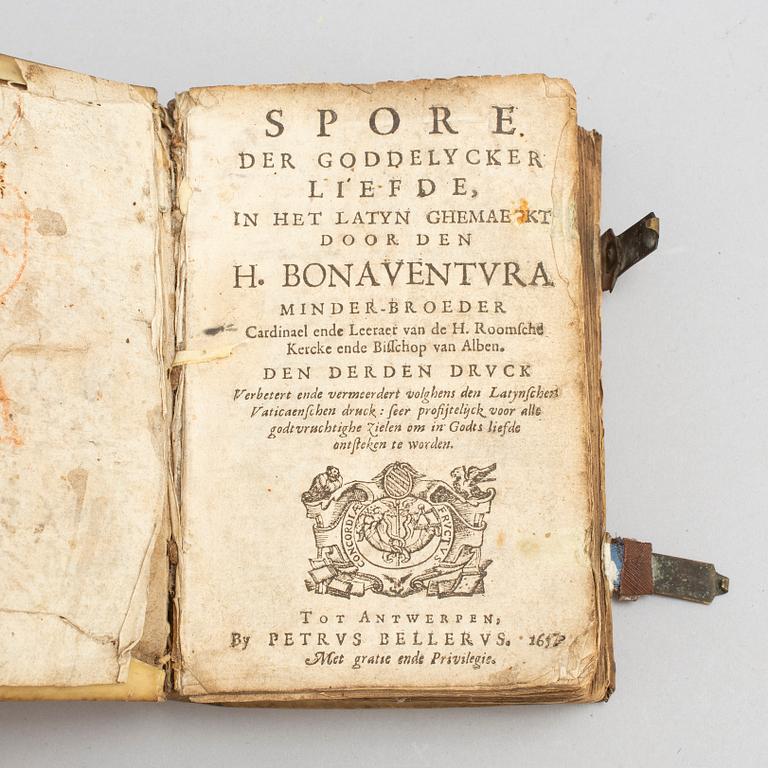 SPORE
DER GODDELYCKER
LIEFDE,
IN HET LATYN GHEMAECKT
DOOR DEN
H. BONAVENTVRA
MINDER-BROEDER
Cardinael ende Leeraer van de H. Roomsche
Kercke ende Bisschop van Alben.
DEN DERDEN DRVCK
Verbetert ende vermeerdert volghens den Latynschen
Vaticaenschen druck: seer profijtelijck voor alle
godtvruchtighe zielen om in Godts liefde
ontsteken te worden.
CONCORDIÆ FRVCTVS
TOT ANTWERPEN,
By PETRVS BELLERVS.
Met gratie ende Privilegie.